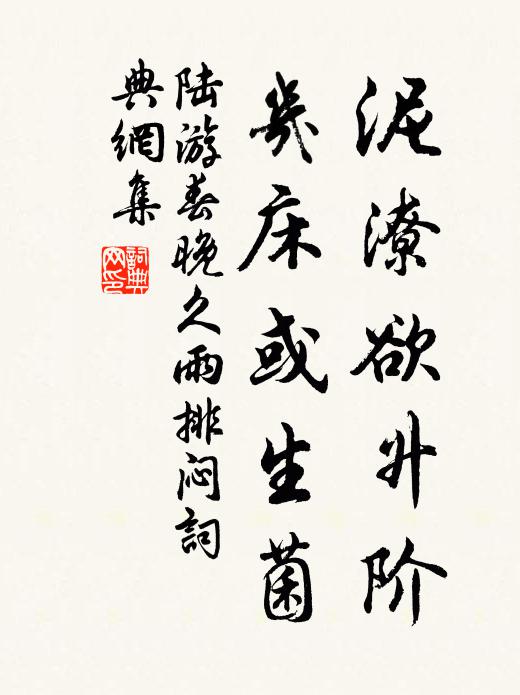 泥潦欲升阶
几床或生菌
陆游春晚久雨排闷詞
典網集
詞典
网印